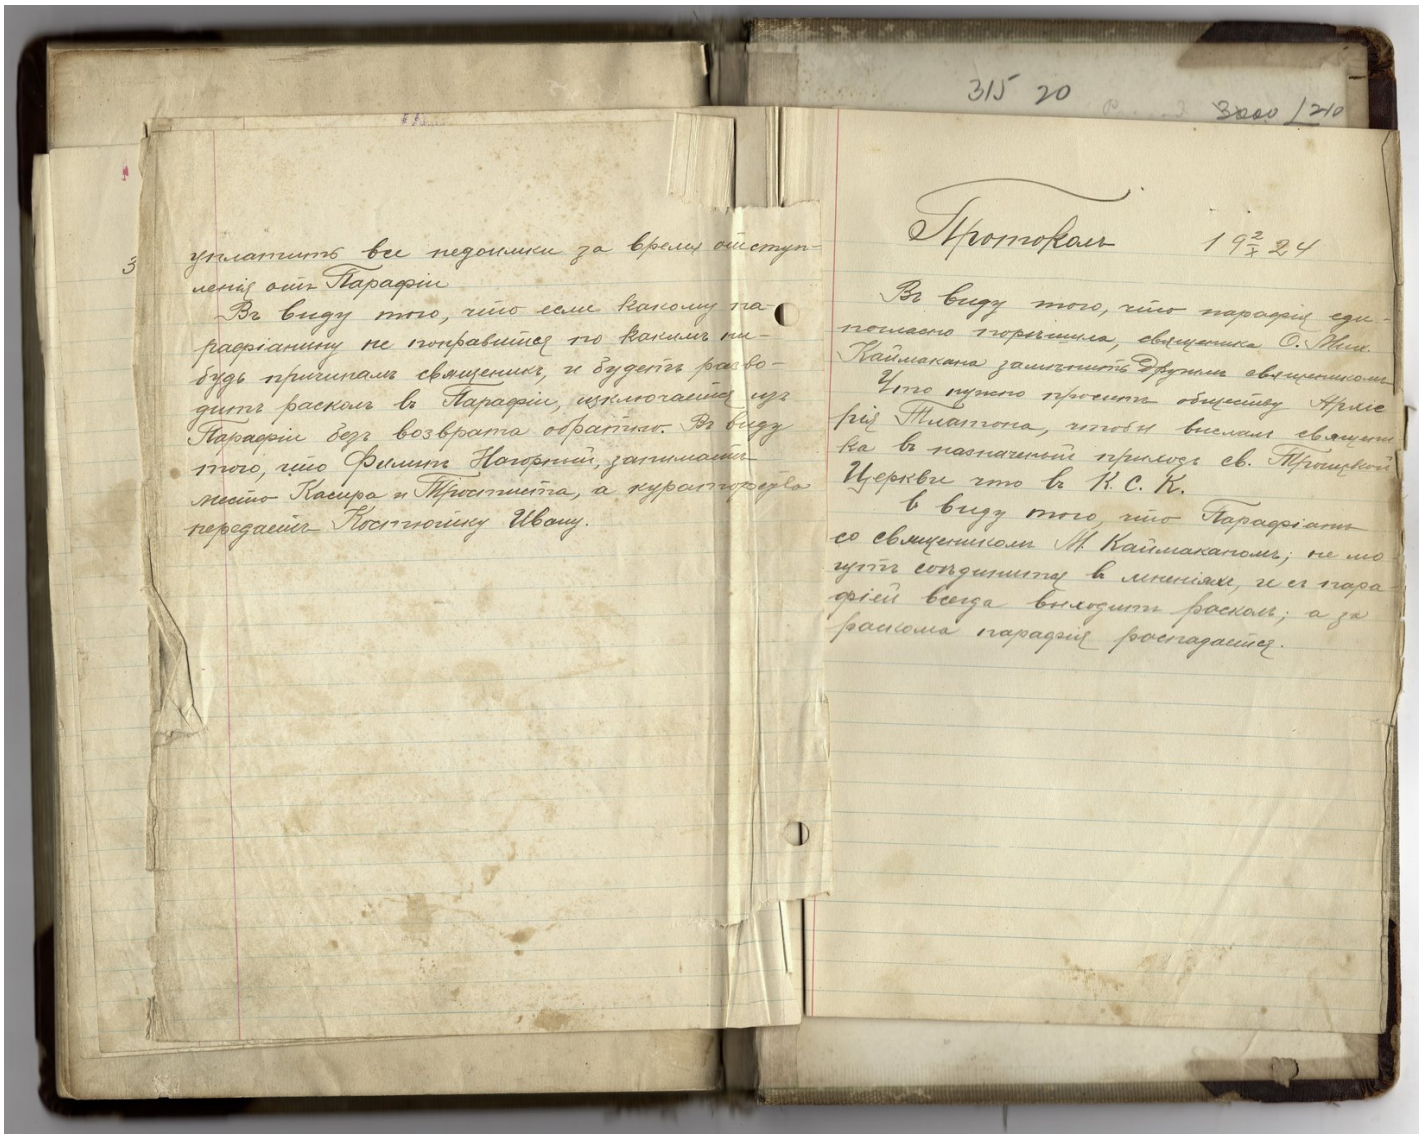 315 20
3000 / 210
3
уплатитъ все недоимки за время отступ-
ленія отъ Парафіи
Въ виду того, что если какому па-
рафіанину не понравится по какимъ ни-
будь причинамъ священикъ, и будетъ разво-
дитъ расколъ въ Парафіи, изключается изъ
Парафіи безъ возврата обратно. Въ виду
того, что Филипъ Нагорный, занимаетъ
место Касира и Тростиста, а кураторства
передаетъ Костючику Ивану.
Протоколъ 19 2/X 24
Въ виду того, что парафія еди-
погласно порешила, священика О. Мих.
Каймакана заменитъ Другимъ священикомъ
Что нужно просить обществу Архіе
рея Платона, чтобы выслалъ священи
ка въ назначеный приходъ св. Троицкой
Церкви что въ К. С. К.
В виду того, что Парафіанъ
со священикомъ М. Каймаканомъ; не мо
гутъ соединится в мненіяхъ, и съ пара-
фіей всегда выходитъ расколъ; а за
раскола парафія роспадается.